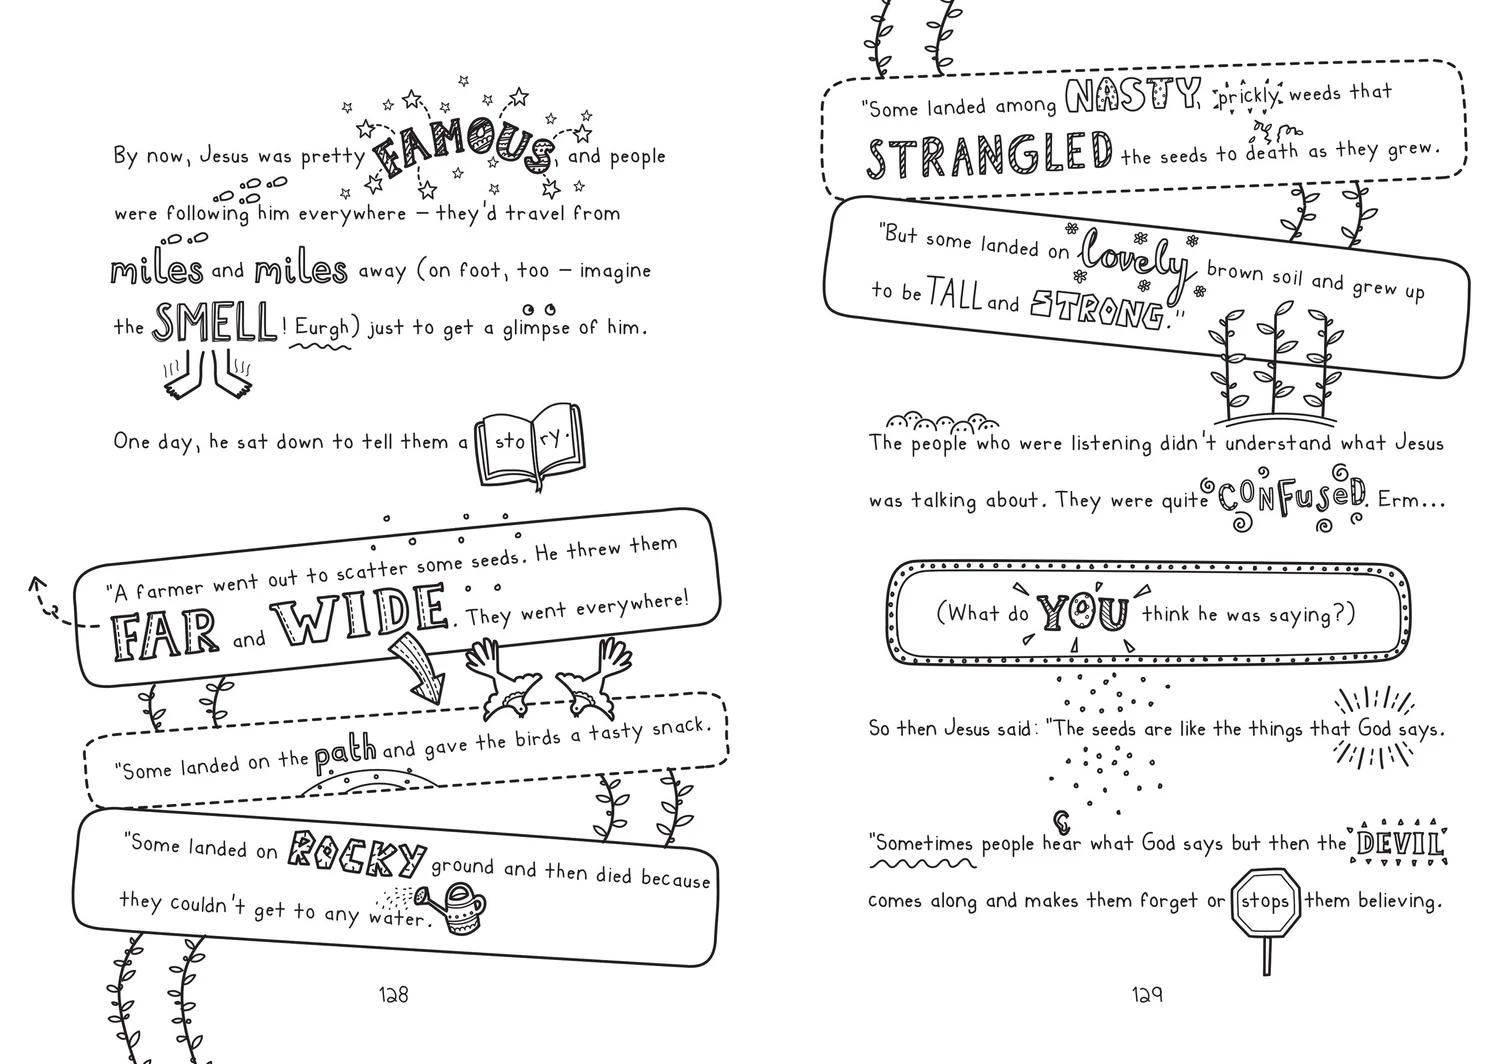 By now, Jesus was pretty FAMOUS, and people
were following him everywhere – they'd travel from
miles and miles away (on foot, too – imagine
the SMELL! Eurgh) just to get a glimpse of him.
One day, he sat down to tell them a story.
"A farmer went out to scatter some seeds. He threw them
FAR and WIDE. They went everywhere!
"Some landed on the path and gave the birds a tasty snack.
"Some landed on ROCKY ground and then died because
they couldn't get to any water.
128
"Some landed among NASTY, prickly weeds that
STRANGLED the seeds to death as they grew.
"But some landed on lovely brown soil and grew up
to be TALL and STRONG."
The people who were listening didn't understand what Jesus
was talking about. They were quite CONFuSeD. Erm...
(What do YOU think he was saying?)
So then Jesus said: "The seeds are like the things that God says.
"Sometimes people hear what God says but then the DEVIL
comes along and makes them forget or stops them believing.
129